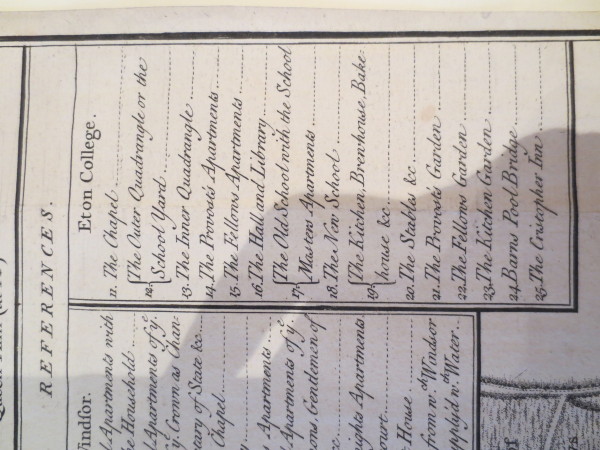 REFERENCES.
Windsor.
Apartments with
the Household
Apartments of yᵉ
yᵉ Crown as Chan-
tary of State &c
Chapel
Apartments
Apartments of yᵉ
Gentlemen of
Knights Apartments.
Court
House
from wᶜʰ Windsor
wᵗʰ Water
Eton College.
11. The Chapel
12. The Outer Quadrangle or the
School Yard
13. The Inner Quadrangle
14. The Provost's Apartments
15. The Fellows Apartments
16. The Hall and Library
17. The Old School with the School
Masters Apartments
18. The New School
19. The Kitchen, Brewhouse, Bake-
house &c
20. The Stables &c
21. The Provost's Garden
22. The Fellows Garden
23. The Kitchen Garden
24. Barns Pool Bridge
25. The Cristopher Inn